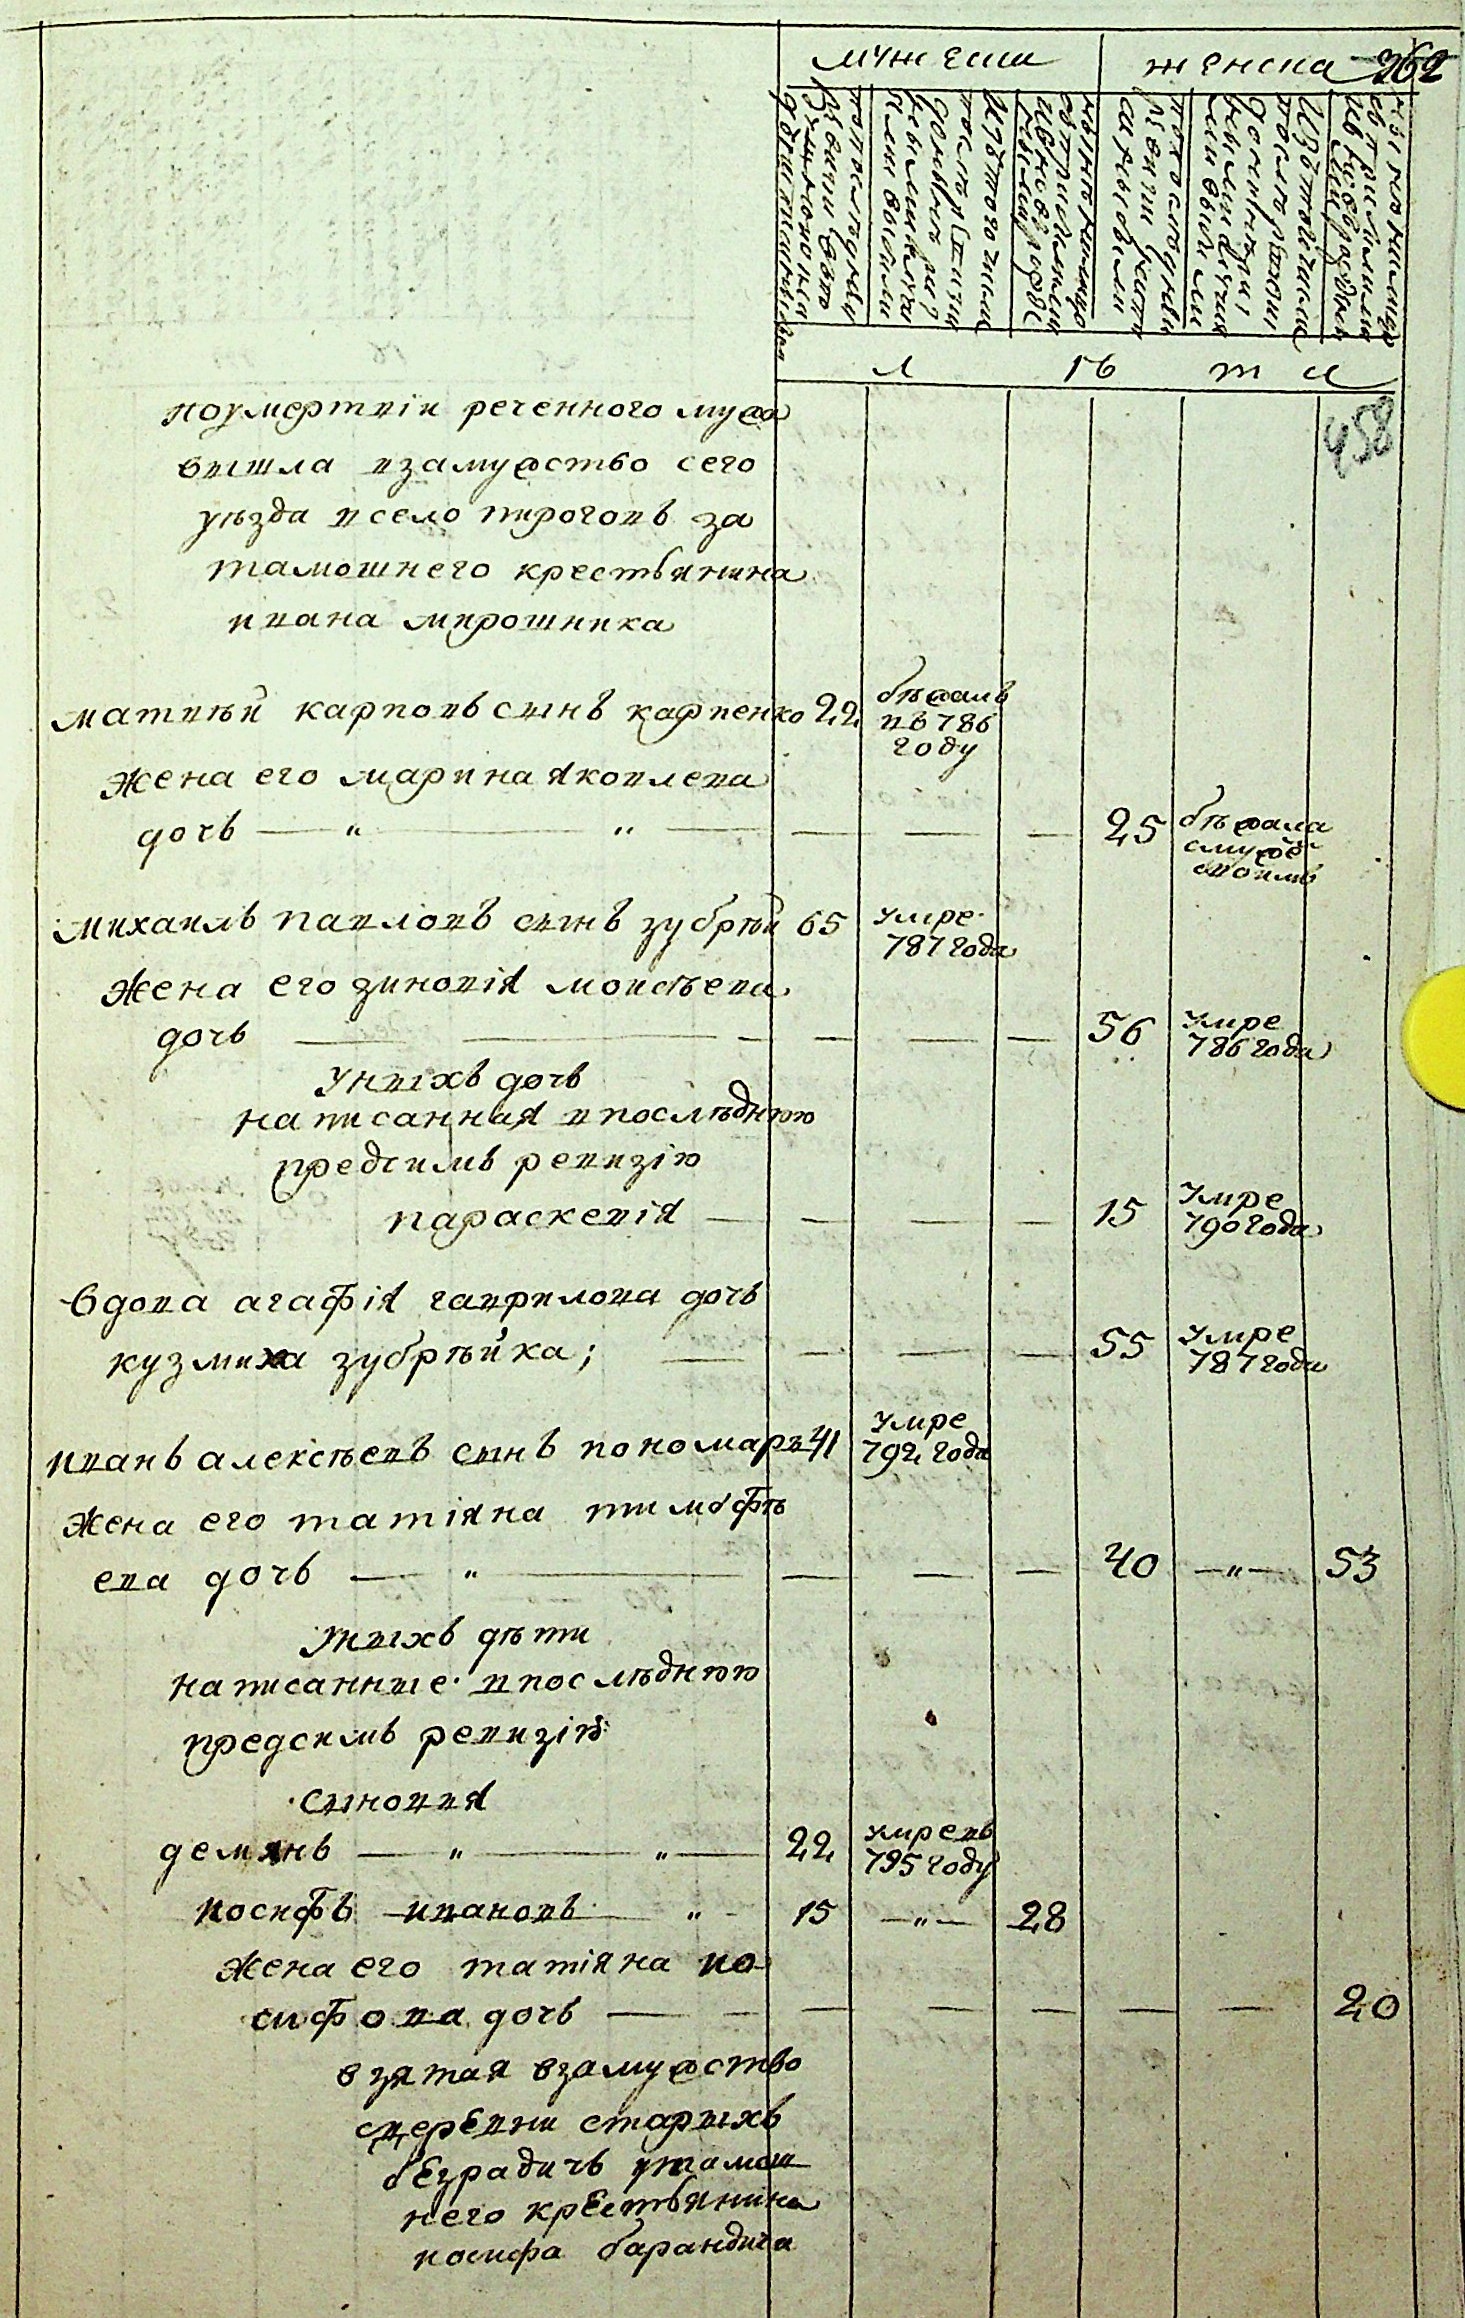 мужеска
женска
262
лѣта
458
по умертвіи реченного мужа
вышла взамужство сего
уѣзда в село пирогoвъ за
тамошнего крестьянина
ивана мирошника
матвѣй карповъ сынъ карпенко 22 бѣжалъ въ 786 году
жена его марина яковлева
дочь — „ — „ — — — — 25 бѣжала с мужемъ своимъ
михаилъ павловъ сынъ зубрѣй 65 умре 787 года
жена его зиновія моисѣева
дочь — — — — — — 56 умре 786 года
у ныхъ дочь
написанная в послѣднюю
предсимъ ревизію
параскевія — — — — 15 умре 790 года
вдова агафія гаврилова дочь
кузмиха зубрѣйка; — — — — 55 умре 787 года
иванъ алексѣевъ сынъ пономаръ 41 умре 792 года
жена его татіяна тимофѣ
ева дочь — „ — — — — 40 — „ — 53
у ныхъ дѣти
написанные в послѣднюю
предсимъ ревизію
сыновья
демянъ — „ — „ — 22 умре въ 795 году
иосифъ ивановъ „ — 15 — „ — 28
жена его татіяна ио
сифова дочь — — — — — — — 20
взятая взамужство
с деревни старыхъ
безрадичъ у тамош
него крестьянина
иосифа барандича